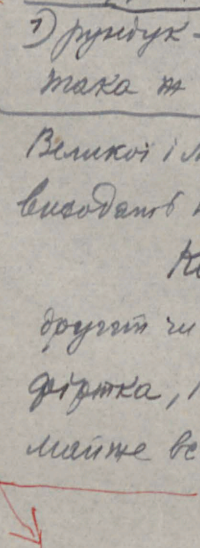 1) рундук -
така ж
Великої і м
висодать
Ко
другит чи
фіртка, 
майже вс